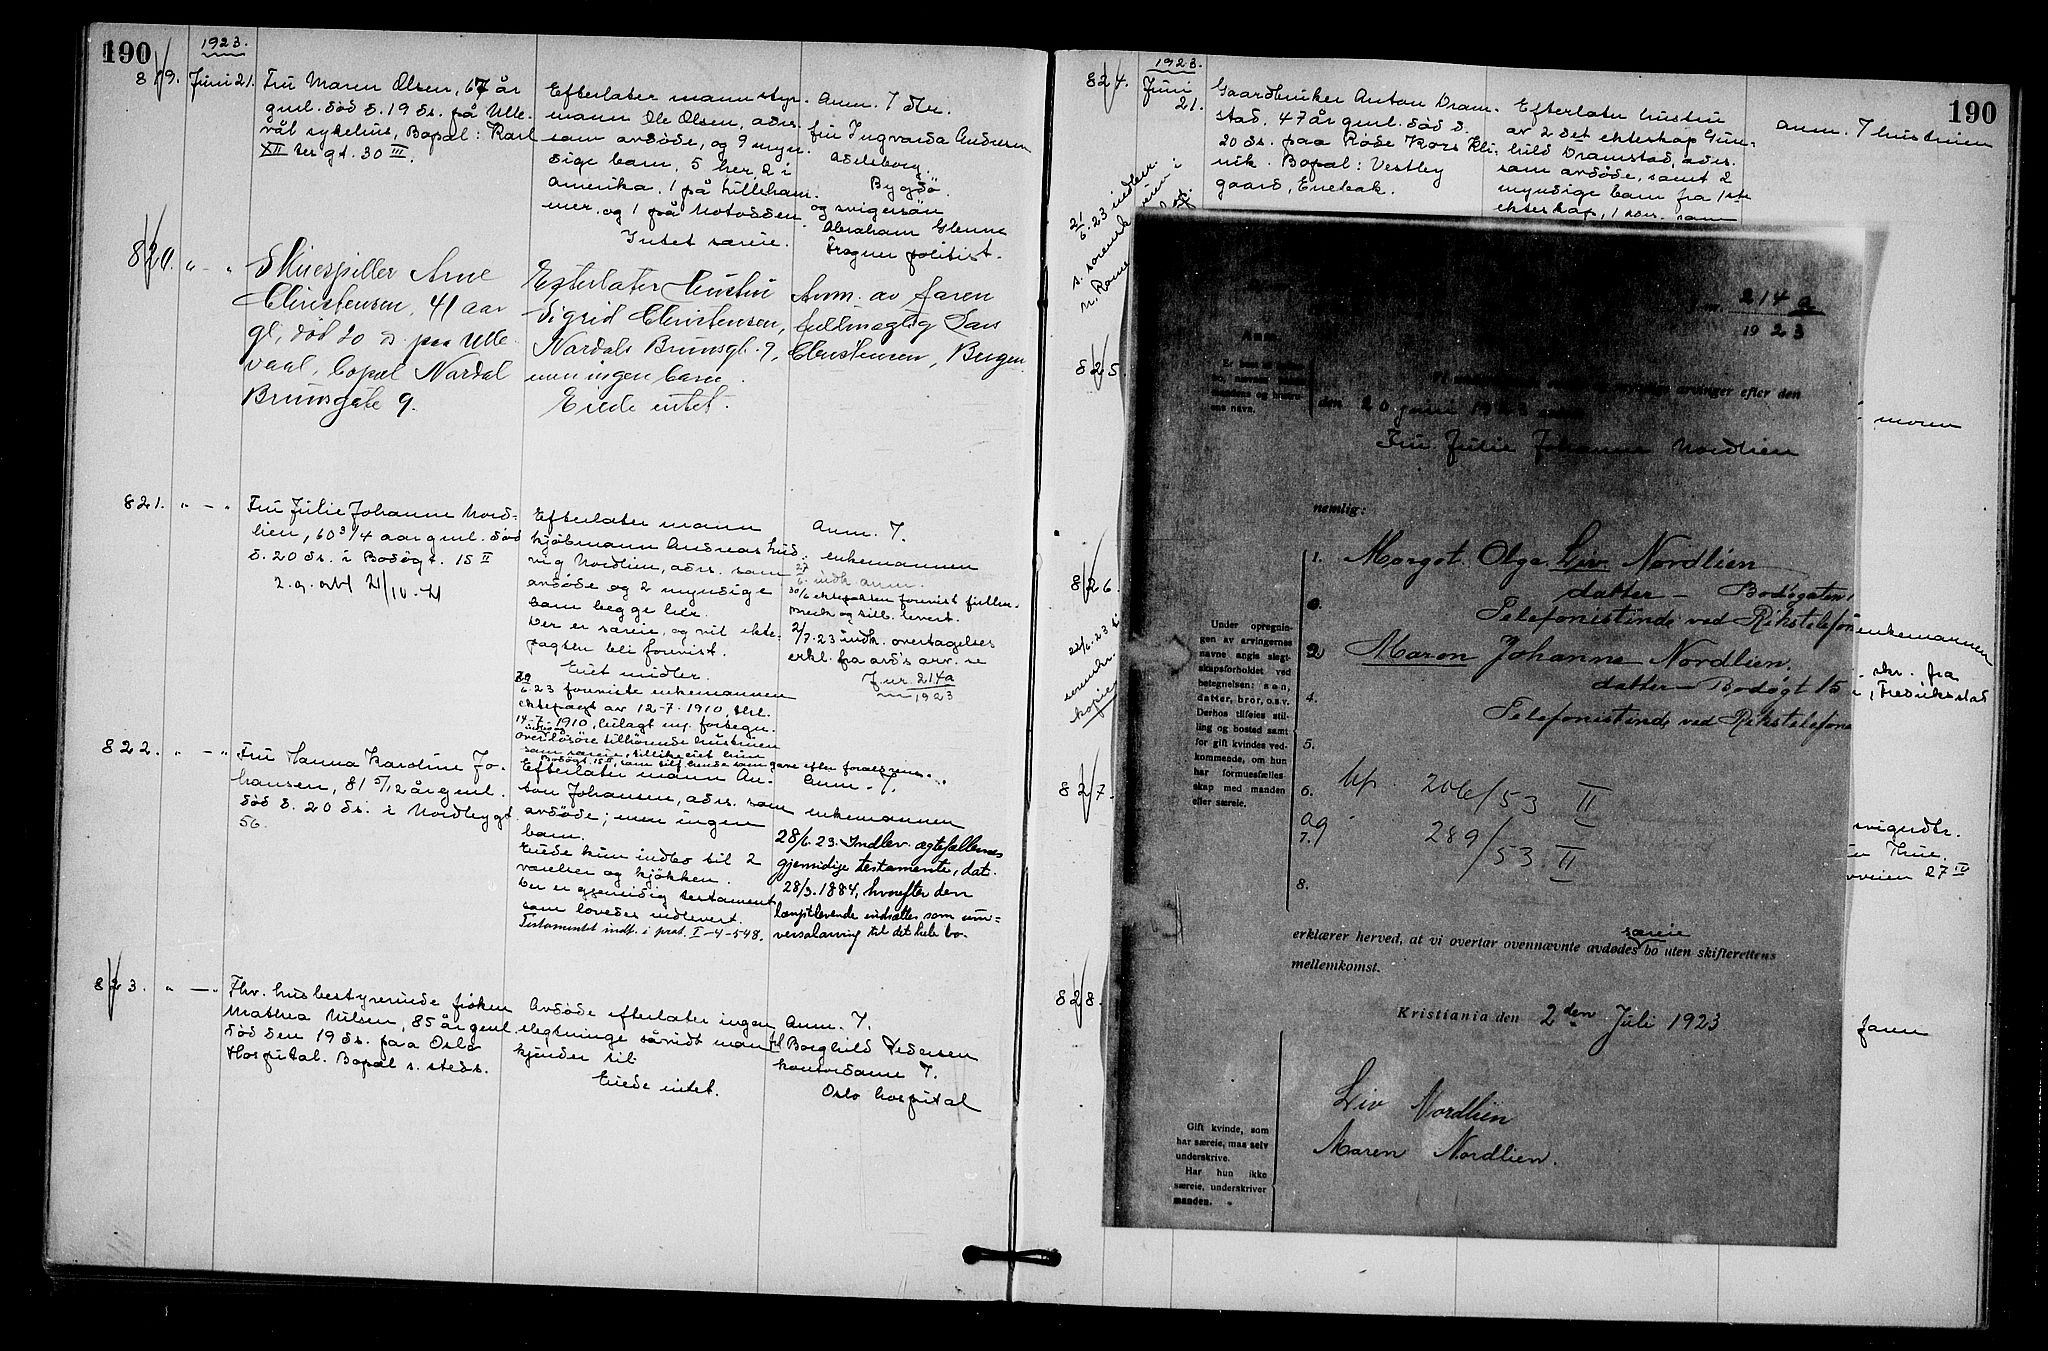 190
1923.
819. Juni 21.
Fru Maren Olsen, 67 år
gml. død d. 19 ds. på Ulle-
vål sykehus, Bopæl: Karl
XII tes gt. 30 III.
Efterlater mann styr-
mann Ole Olsen, adrs.
som avdøde, og 9 myn-
dige barn, 5 her, 2 i
Amerika, 1 på Lilleham-
mer, og 1 på Notodden.
Intet særeie.
Anm. 7 dtr.
fru Ingvarda Andersen
Adelsborg,
Bygdø
og svigersøn
Abraham Glenne
Frogner politist.
820. " - "
Skuespiller Arne
Christensen, 41 aar
gl, død 20 ds. paa Ulle-
vaal, bopæl Nordal
Brunsgate 9.
Efterlater hustru
Sigrid Christensen,
Nordals Brunsgt. 9,
men ingen barn.
Eiede intet.
Anm. av faren
fuldmægtig
Christensen, Bergen.
821. " - "
Fru Julie Johanne Nord-
lien, 60 3/4 aar gml. død
d. 20 ds. i Bodøgt. 15 II
Efterlater mann
kjøbmann Andreas Lud-
vig Nordlien, adrs. som
avdøde og 2 myndige
barn begge her.
Der er særeie, og vil ekte-
pagten bli forevist.
Eiet midler.
29/6.23 foreviste enkemannen
ektepagt av 12-7-1910, thl.
14-7-1910,
overløsøre tilhørende hustruen
Anm. 7.
enkemannen
27/6. indk. anm.
30/6 ektepakten forevist
2/7.23 indk. overtagelses
erkl. fra avd's arv. se
J.nr. 214a
1923
822. " - "
Fru Hanna Karoline Jo-
hansen, 81 5/12 år gml.
død d. 20 ds. i Nordbygt
56.
Efterlater mann An-
ton Johansen, adrs. som
avdøde; men ingen
barn.
Eiede kun indbo til 2
værelser og kjøkken.
Der er gjensidig testament
som lovedes indlevert.
Testamentet indt. i prot. I-4-548.
Anm. 7.
enkemannen
28/6.23. Indlev. ægtefællenes
gjensidige testamente, dat.
28/3.1884, hvorefter den
længstlevende indsættes som uni-
versalarving til det hele bo.
823. " - "
Fhv. husbestyrerinde frøken
Mathea Nilsen, 85 år gml
død den 19 ds. paa Oslo
Hospital. Bopæl s. steds.
Avdøde efterlater ingen
slegtninge såvidt man
kjender til
Eiede intet.
Anm. 7.
frk Borghild Pedersen
kontordame 7.
Oslo hospital
190
1923.
824. Juni
21.
Gaardbruker Anton Dram-
stad, 47 år gml. død d.
20 ds. paa Røde Kors Kli-
nik. Bopæl: Vestby
gaard, Enebak.
Efterlater hustru
av 2 det ekteskap Gun-
hild Dramstad, adrs.
som avdøde, samt 2
myndige barn fra 1ste
ekteskap, 1 som
Anm. 7 hustruen
21/6.23 indlev.
825
moren
826.
22/6.23
sorenskr.
kopie
enkemannen
skr. fra
Fredriksstad
827.
svigndtr.
Thue.
veien 27 IV
828.
faren
J.nr. 214 a
1923
arvinger efter den
den 20 juni 1923
Fru Julie Johanne Nordlien
nemlig:
1. Margot Olga Liv Nordlien
datter - Bodøgaten 1
Telefonistinde ved Rikstelefon
2 Maren Johanne Nordlien.
datter - Bodøgt 15
4.
Telefonistinde ved Rikstelefone
5.
6.
7.
8.
206/53 II
og 289/53 II
Under opregnin-
gen av arvingernes
navne angis slegt-
skapsforholdet ved
betegnelsen: søn,
datter, bror, o.s.v.
Derhos tilføies stil-
ling og bosted samt
for gift kvindes ved-
kommende, om hun
har formuesfælles-
skap med manden
eller særeie.
særeie
erklærer herved, at vi overtar ovennævnte avdødes bo uten skifterettens
mellemkomst.
Kristiania den 2den Juli 1923
Liv Nordlien
Maren Nordlien.
Gift kvinde, som
har særeie, maa selv
underskrive.
Har hun ikke
særeie, underskriver
manden.